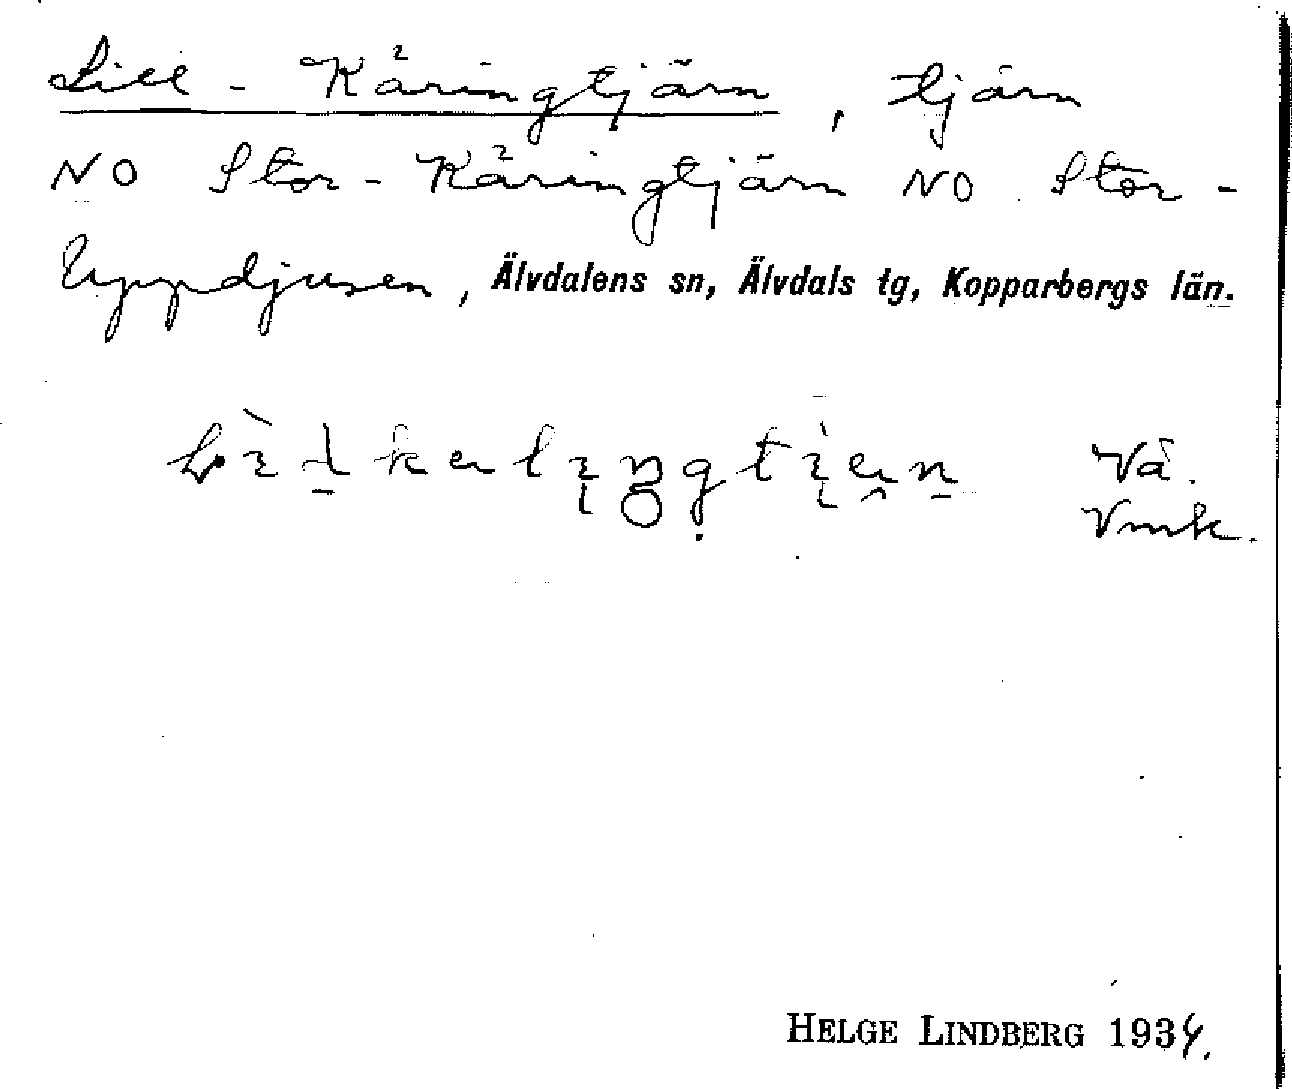 Lill-Käringtjärn, tjärn
NO Stor-Käringtjärn NO Stor-
Uppdjusen, Älvdalens sn, Älvdals tg, Kopparbergs län.
Vå.
Vmk.
HELGE LINDBERG 1934.